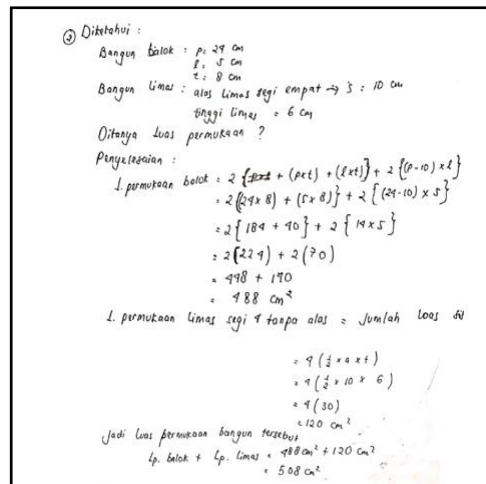 ② Diketahui :
Bangun balok : p: 24 cm
l: 5 cm
t: 8 cm
Bangun limas : alas limas segi empat → s : 10 cm
tinggi limas = 6 cm
Ditanya Luas permukaan ?
Penyelesaian :
L. permukaan balok = 2 { + (pxt) + (lxt)} + 2 {(p-10) x l}
= 2{(24x 8) + (5x 8)} + 2 {(24-10) x 5}
= 2 { 184 + 40 } + 2 { 14 x 5 }
= 2(224) + 2(70)
= 448 + 140
= 488 cm²
L. permukaan limas segi 4 tanpa alas = Jumlah luas
= 4 (½ x a x t)
= 4 (½ x 10 x 6)
= 4 (30)
= 120 cm²
Jadi luas permukaan bangun tersebut
Lp. balok + Lp. limas = 488 cm² + 120 cm²
= 508 cm²